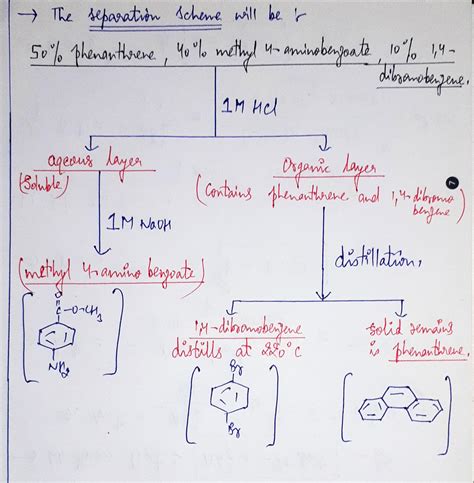 → The separation scheme will be :-
50% phenanthrene, 40% methyl 4-aminobenzoate, 10% 1,4-
dibromobenzene.
1M HCl
aqeous layer
(Soluble)
Organic layer
(Contains phenanthrene and 1,4-dibromo
benzene)
1M NaOH
distillation,
(methyl 4-amino benzoate)
O
C-O-CH3
NH2
1,4-dibromobenzene
distills at 220°C
solid remains
is phenanthrene.
Br
Br